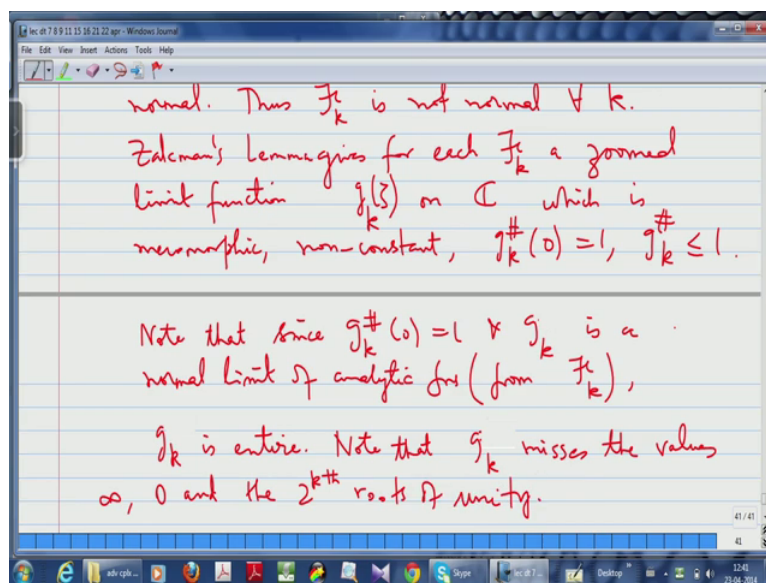 lec dt 7 8 9 11 15 16 21 22 apr - Windows Journal
File Edit View Insert Actions Tools Help
normal. Thus ℱ_k is not normal ∀ k.
Zalcman's Lemma gives for each ℱ_k a zoomed
limit function g_k(ζ) on ℂ which is
meromorphic, non-constant, g_k^#(0) = 1, g_k^# ≤ 1.
Note that since g_k^#(0) = 1 & g_k is a
normal limit of analytic fns (from ℱ_k),
g_k is entire. Note that g_k misses the values
∞, 0 and the 2^k th roots of unity.
41 / 41
41
adv cpls... Skype lec dt 7... Desktop 12:41
23-04-2014